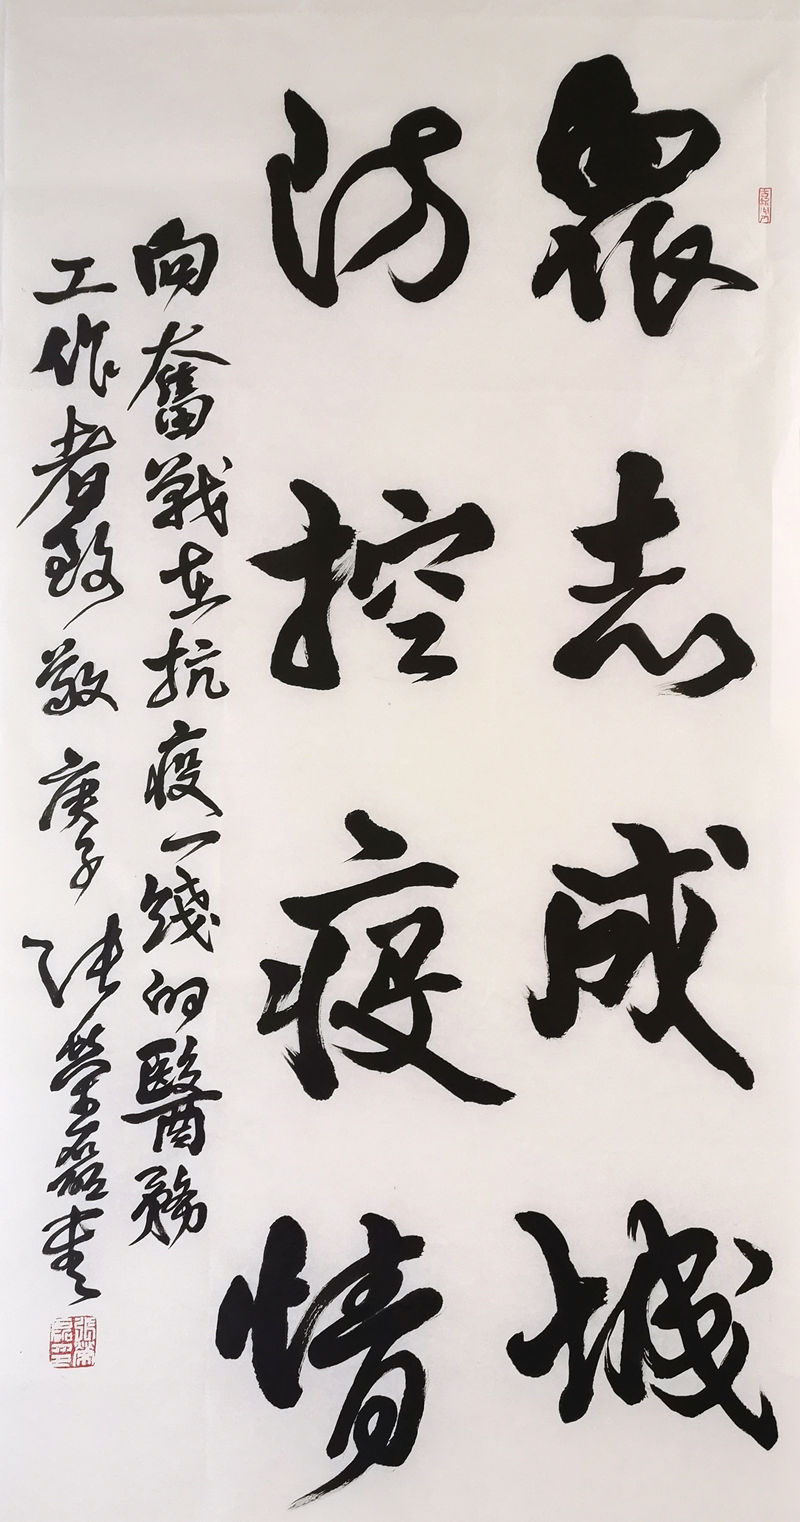 眾志成城
防控疫情
向奮戰在抗疫一綫的醫務
工作者致敬 庚子 張榮磊書
張榮磊印